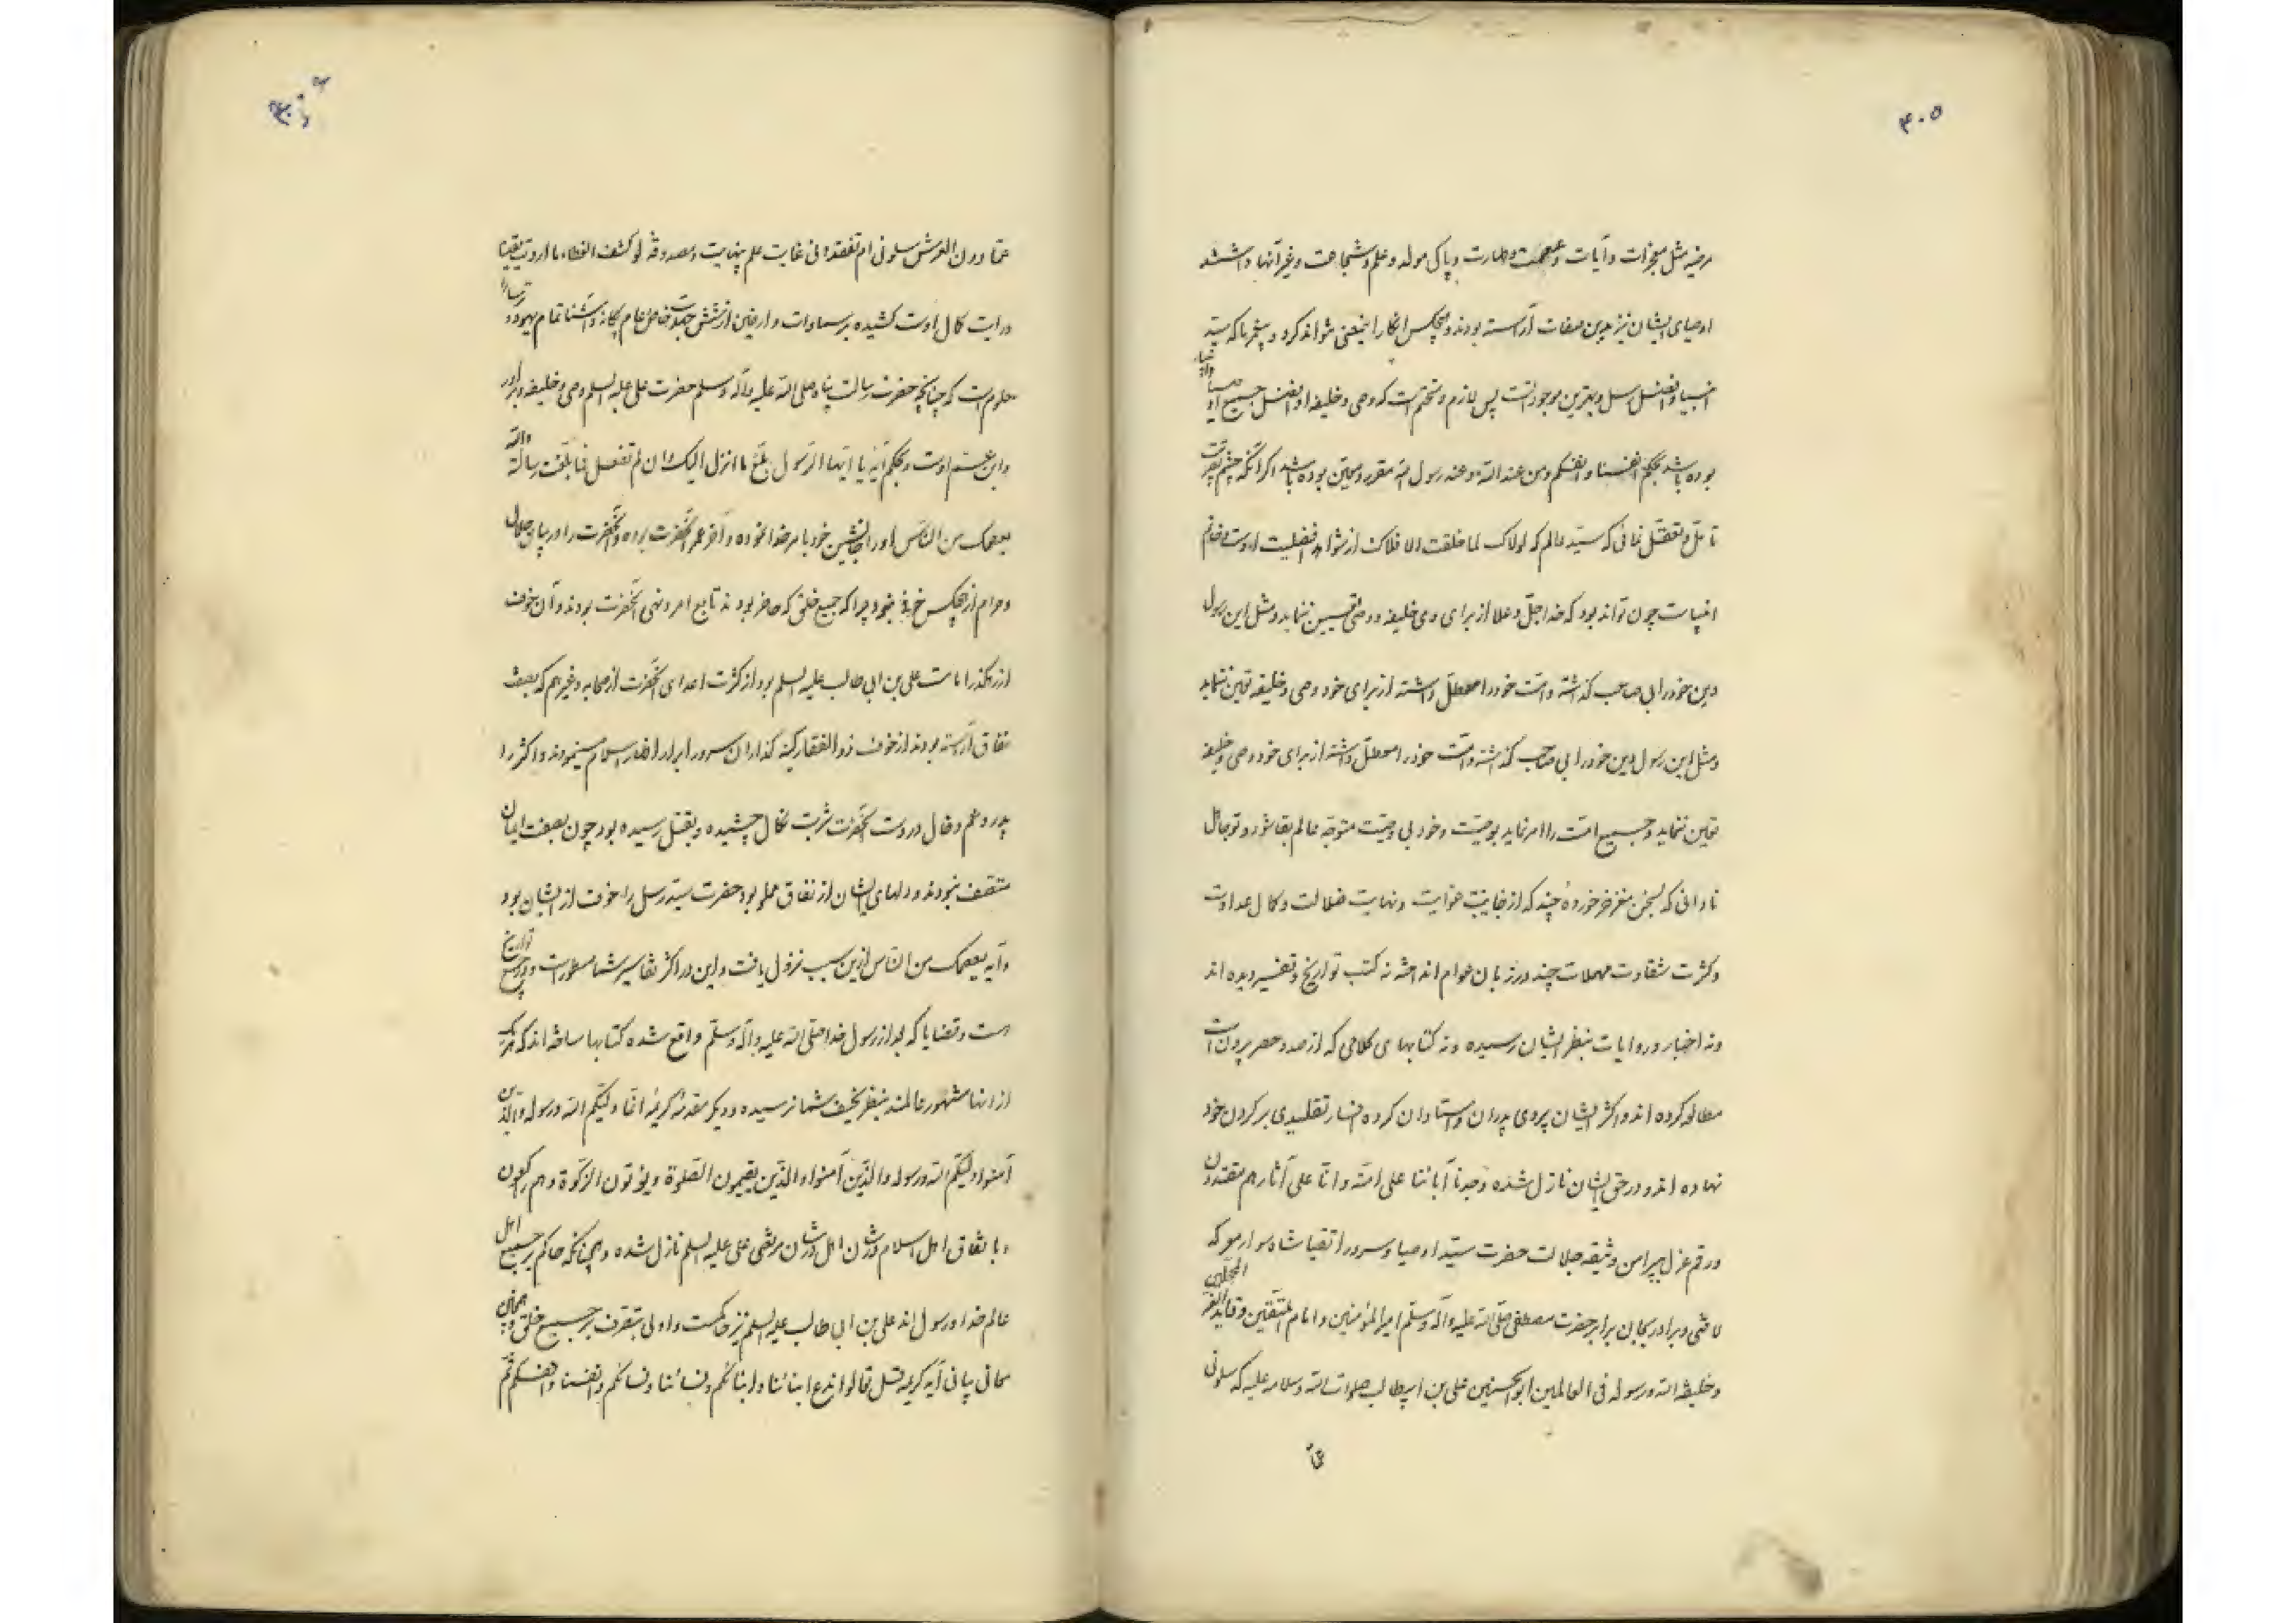 ۴۰۵
مرضیه مثل معجزات و آیات و عصمت و طهارت و پاکی مولد و علم و شجاعت و غیر آنها داشتند
اوصیای ایشان نیز بدین صفات آراسته بودند و هیچکس انکار اینمعنی نتواند کرد و پیغمبر ما که سید
انبیا و افضل رسل و بهترین موجودات است پس لازم و متحتم است که وصی و خلیفه او افضل جمیع اوصیا
بوده باشد بحکم انفسنا و انفسکم و من عند الله و عند رسول الله مقرر و معین بوده باشد اگر آنکه چشم بصیرت
تأمل و تعقل نمائی که سید عالم که لولاک لما خلقت الافلاک از شواهد افضلیت اوست و خاتم
انبیاست چون تواند بود که خدا جل و علا از برای وی خلیفه و وصی تعیین ننماید و مثل این رسول
دین خود را بی صاحب گذاشته و امت خود را معطل داشته از برای خود وصی و خلیفه تعین ننماید
و مثل این رسول دین خود را بی صاحب گذاشته و امت خود را معطل داشته از برای خود وصی و خلیفه
تعین ننماید و جمیع امت را امر نماید بوصیت و خود بی وصیت متوجه عالم بقا شود و تو جاهل
نادانی که بسخن مغز خر خورده چند که از غایت غوایت و نهایت ضلالت و کمال عداوت
و کثرت شقاوت مهملات چند در زبان عوام انداخته نه کتب تواریخ و تفسیر دیده اند
و نه اخبار و روایات بنظر ایشان رسیده و نه کتابهای کلامی که از حد و حصر بیرون است
مطالعه کرده اند و اکثر ایشان پیروی پدران و استادان کرده افسار تقلیدی بر گردن خود
نهاده اند و در حق ایشان نازل شده وجدنا آبائنا علی امة و انا علی آثارهم مقتدون
و رقم عزل پیرامن وثیقه جلالت حضرت سید اوصیا و سرور اتقیا شاه سوار معرکه
لافتی و برادر بجان برابر حضرت مصطفی صلی الله علیه و آله و سلم امیر المؤمنین و امام المتقین و قاید الغر المحجلین
و خلیفة الله و رسوله فی العالمین ابو الحسنین علی بن ابیطالب صلوات الله و سلامه علیه که سلونی
عما دون العرش سلونی ام تفقدونی غایت علم بینهایت و مصدوقه لو کشف الغطاء ما ازددت یقینا
درایت کمال اوست کشیده بر سماوات و ارضین از شش جهت خاص و عام بیگانه و آشنا تمام یهود و ترسا را
معلوم است که چنانچه حضرت رسالت پناه صلی الله علیه و آله و سلم حضرت علی علیه السلم وصی و خلیفه و برادر
و ابن عم اوست و بحکم آیه یا ایها الرسول بلغ ما انزل الیک و ان لم تفعل فما بلغت رسالته و الله
یعصمک من الناس او را جانشین خود بامر خدا نموده و آخر عمر آنحضرت بوده و آنحضرت را در بیان حلال
و حرام از هیچکس خوف نبود چرا که جمیع خلق که حاضر بودند تابع امر و نهی آنحضرت بودند و آن خوف
از رهگذر امامت علی بن ابی طالب علیه السلم بود از کثرت اعدای آنحضرت از صحابه و غیرهم که بصفت
نفاق آراسته بودند از خوف ذو الفقار کینه گذار آن سرور ابرار اظهار اسلام مینمودند و اکثر را
پدر و عم و خال در دست آنحضرت شربت نکال چشیده و بقتل رسیده بود چون بصفت ایمان
متصف نبودند و دلهای ایشان از نفاق مملو بود حضرت سید رسل را خوف از ایشان بود
و آیه یعصمک من الناس ازین سبب نزول یافت و این در اکثر تفاسیر شما مسطور است و در جمیع تواریخ
است و قضایا که بعد از رسول خدا صلی الله علیه و آله و سلم واقع شده کتابها ساخته اند که هر یک
از آنها مشهور عالمند بنظر نحیف شما نرسیده و دیگر مقدمه کریمه انما ولیکم الله و رسوله و الذین
آمنوا ولیکم الله و رسوله و الذین آمنوا و الذین یقیمون الصلوة و یؤتون الزکوة و هم راکعون
و باتفاق اهل اسلام در شأن اهل در شان مرتضی علی علیه السلم نازل شده و همچنانکه حاکم بر جمیع اهل
عالم خدا و رسول اند علی بن ابی طالب علیه السلم نیز حاکمست و اولی بتصرف بر جمیع خلق و
معانی بیانی آیه کریمه قل تعالوا ندع ابنائنا و ابنائکم و نسائنا و نسائکم و انفسنا و انفسکم ثم